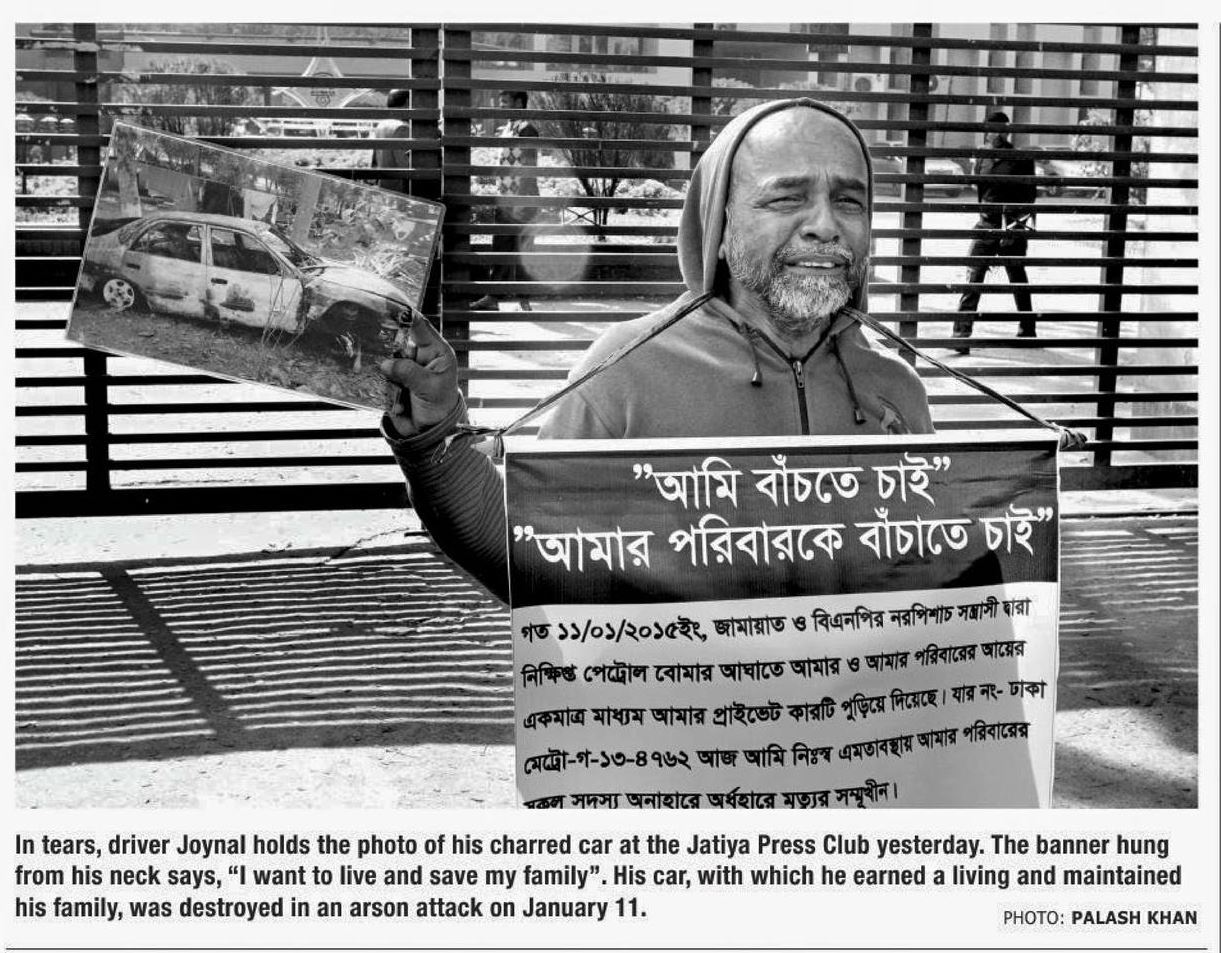 ”আমি বাঁচতে চাই”
”আমার পরিবারকে বাঁচাতে চাই”
গত ১১/০১/২০১৫ইং, জামায়াত ও বিএনপির নরপিশাচ সন্ত্রাসী দ্বারা
নিক্ষিপ্ত পেট্রোল বোমার আঘাতে আমার ও আমার পরিবারের আয়ের
একমাত্র মাধ্যম আমার প্রাইভেট কারটি পুড়িয়ে দিয়েছে। যার নং- ঢাকা
মেট্রো-গ-১৩-৪৭৬২ আজ আমি নিঃস্ব এমতাবস্থায় আমার পরিবারের
সকল সদস্য অনাহারে অর্ধহারে মৃত্যুর সম্মূখীন।
In tears, driver Joynal holds the photo of his charred car at the Jatiya Press Club yesterday. The banner hung
from his neck says, “I want to live and save my family”. His car, with which he earned a living and maintained
his family, was destroyed in an arson attack on January 11.
PHOTO: PALASH KHAN